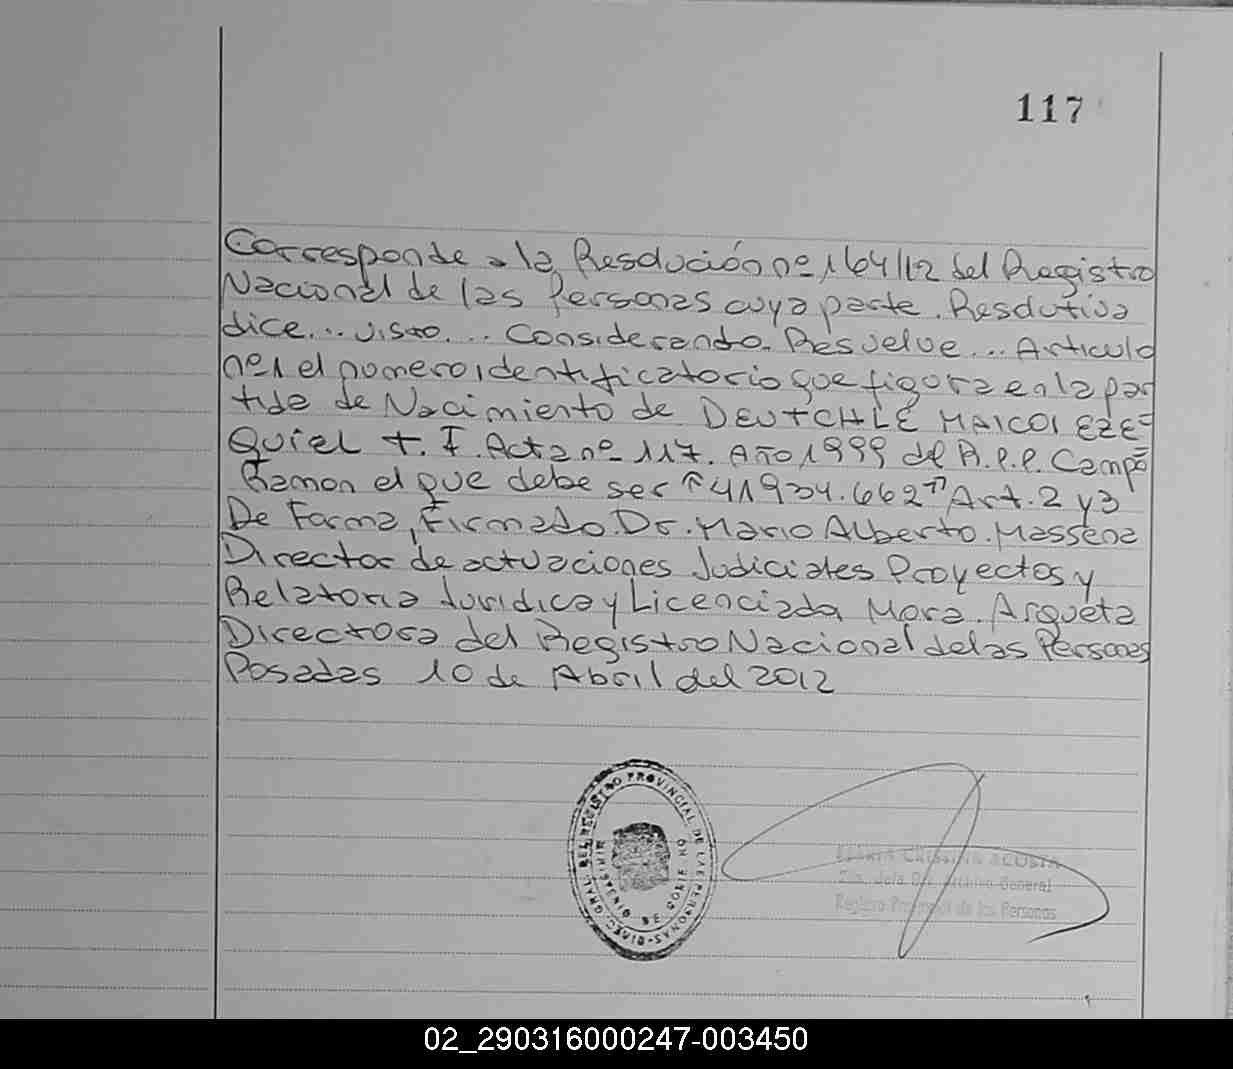 117
Corresponde a la Resolución nº 164/12 del Registro
Nacional de las Personas cuya parte. Resolutiva
dice... visto... Considerando. Resuelve... Articulo
nº1 el numero identificatorio que figura en la par
tida de Nacimiento de DEUTCHLE MAICOL EZE-
Quiel t. I. Acta nº 117. Año 1999 del R.P.P. Campo
Ramon el que debe ser "41934.662" Art. 2 y 3
De Forma, Firmado. Dr. Mario Alberto. Massena
Director de actuaciones Judiciales Proyectos y
Relatoria Juridica y Licenciada Mora. Arqueta
Directora del Registro Nacional de las Personas
Posadas 10 de Abril del 2012
DIREC. GRAL. DEL REGISTRO PROVINCIAL DE LAS PERSONAS
MINISTERIO DE GOBIERNO
CRISTINA ACOSTA
Jefa Archivo General
Registro Provincial de las Personas
02_290316000247-003450